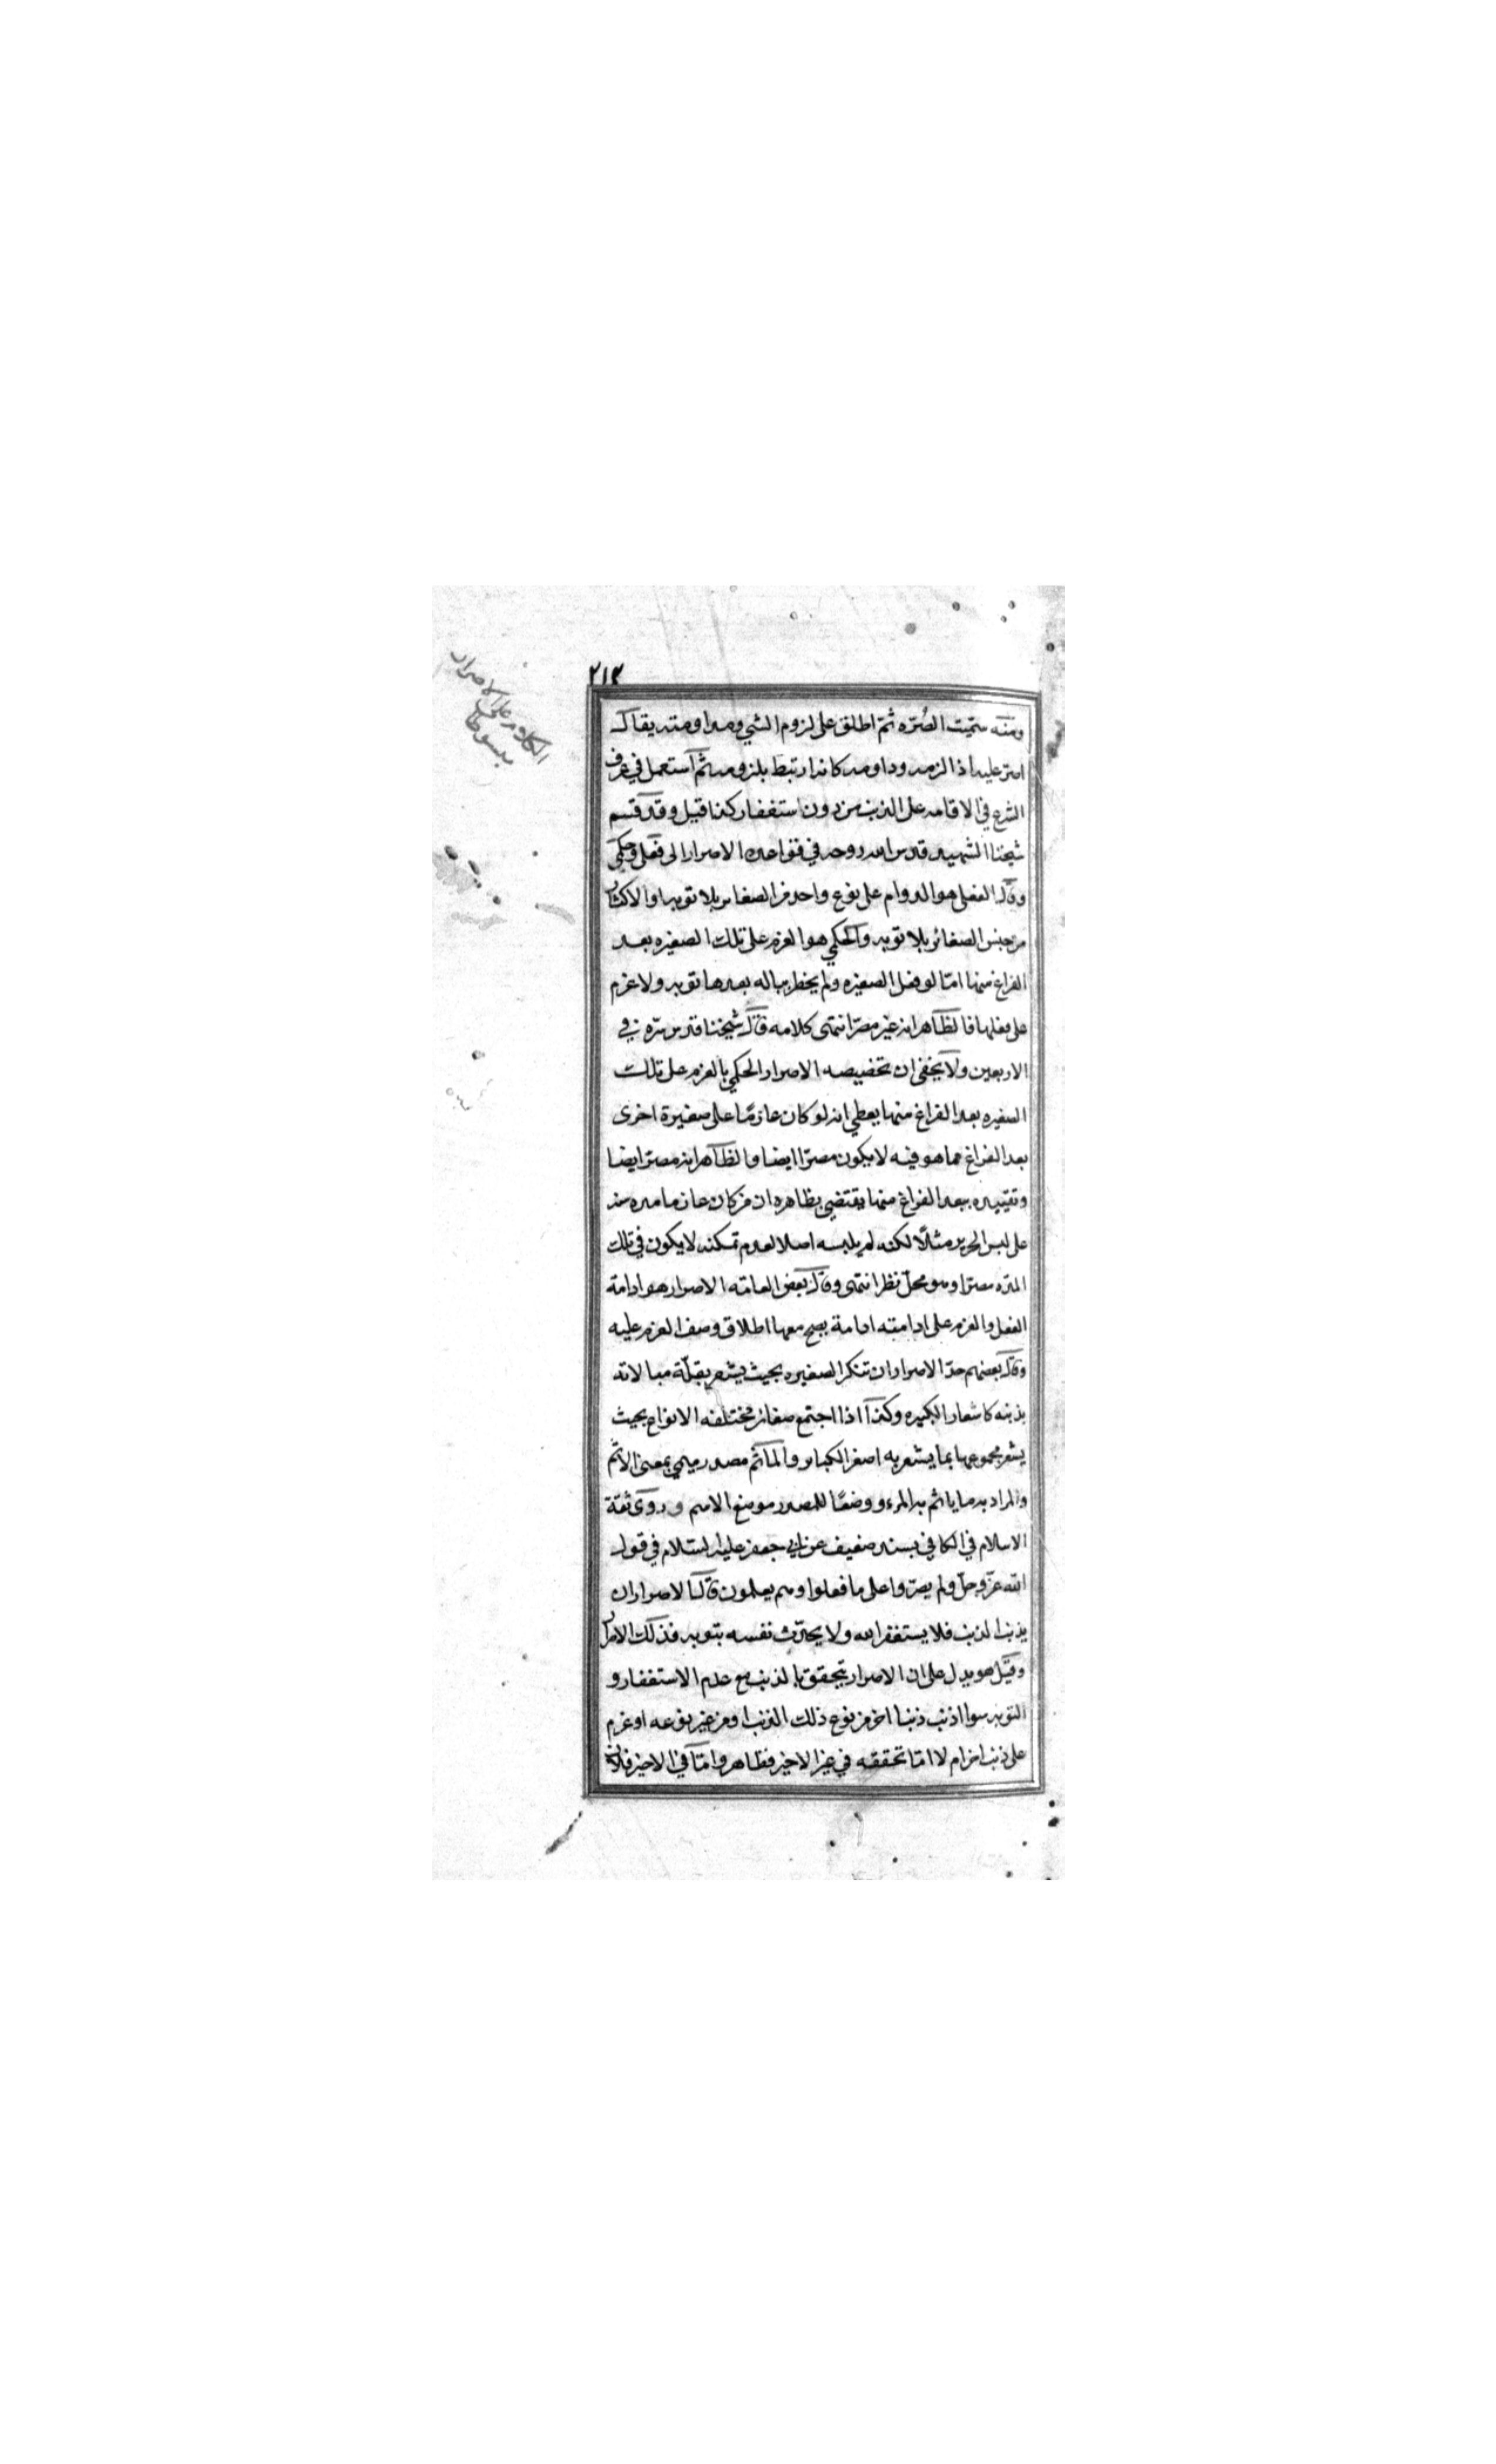 ٢١٣
الكلام على الاصرار
مبسوطا
ومنه سمّيت الصُرّه ثمّ اطلق على لزوم الشي ومداومته يقال
اصرّ عليه اذا لزمه وداومه كانه ارتبط بلزومه ثم استعمل في عرف
الشرع في الاقامه على الذنب من دون استغفار كذا قيل وقد قسم
شيخنا الشهيد قدس الله روحه في قواعده الاصرار الى فعلي وحكمي
وقال الفعلي هو الدوام على نوع واحد من الصغائر بلا توبه او الاكثار
من جنس الصغائر بلا توبه والحكمي هو العزم على تلك الصغيره بعد
الفراغ منها امّا لو فعل الصغيره ولم يخطر بباله بعدها توبه ولا عزم
على فعلها فالظاهر انه غير مصرّ انتهى كلامه قال شيخنا قدس سرّه في
الاربعين ولا يخفى ان تخصيصه الاصرار الحكمي بالعزم على تلك
الصغيره بعد الفراغ منها يعطي انه لو كان عازمًا على صغيرة اخرى
بعد الفراغ مما هو فيه لا يكون مصرّا ايضا والظاهر انه مصرّ ايضا
وتقييده ببعد الفراغ منها يقتضي بظاهره ان من كان عازما مده سنه
على لبس الحرير مثلاً لكنه لم يلبسه اصلا لعدم تمكنه لا يكون في تلك
المدّه مصرّا وهو محلّ نظر انتهى وقال بعض العامّه الاصرار هو ادامة
الفعل والعزم على ادامته ادامة يصح معها اطلاق وصف العزم عليه
وقال بعضهم حدّ الاصرار ان تتكرر الصغيره بحيث يشعر بقلّة مبالاته
بذنبه كاشعار الكبيره وكذا اذا اجتمع صغائر مختلفه الانواع بحيث
يشعر مجموعها بما يشعر به اصغر الكبائر والمآثم مصدر ميمي بمعنى الاثم
والمراد به ما ياثم به المرء ووضعًا للمصدر موضع الاسم وروى ثقة
الاسلام في الكافي بسند ضعيف عن ابي جعفر عليه السّلام في قول
الله عزّ وجلّ ولم يصرّوا على ما فعلوا وهم يعلمون قال الاصرار ان
يذنب الذنب فلا يستغفر الله ولا يحدّث نفسه بتوبه فذلك الاصرار
وقيل هو يدل على ان الاصرار يتحقق بالذنب مع عدم الاستغفار و
التوبه سوا اذنب ذنبا اخر من نوع ذلك الذنب او من غير نوعه او عزم
على ذنب اخر ام لا امّا تحققه في غير الاخير فظاهر وامّا في الاخير فلانه